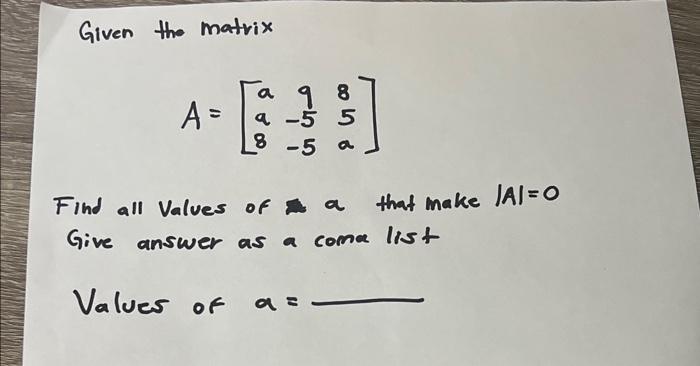 Given the matrix
A = [ a 9 8
a -5 5
8 -5 a ]
Find all Values of a that make |A|=0
Give answer as a coma list
Values of a = ______